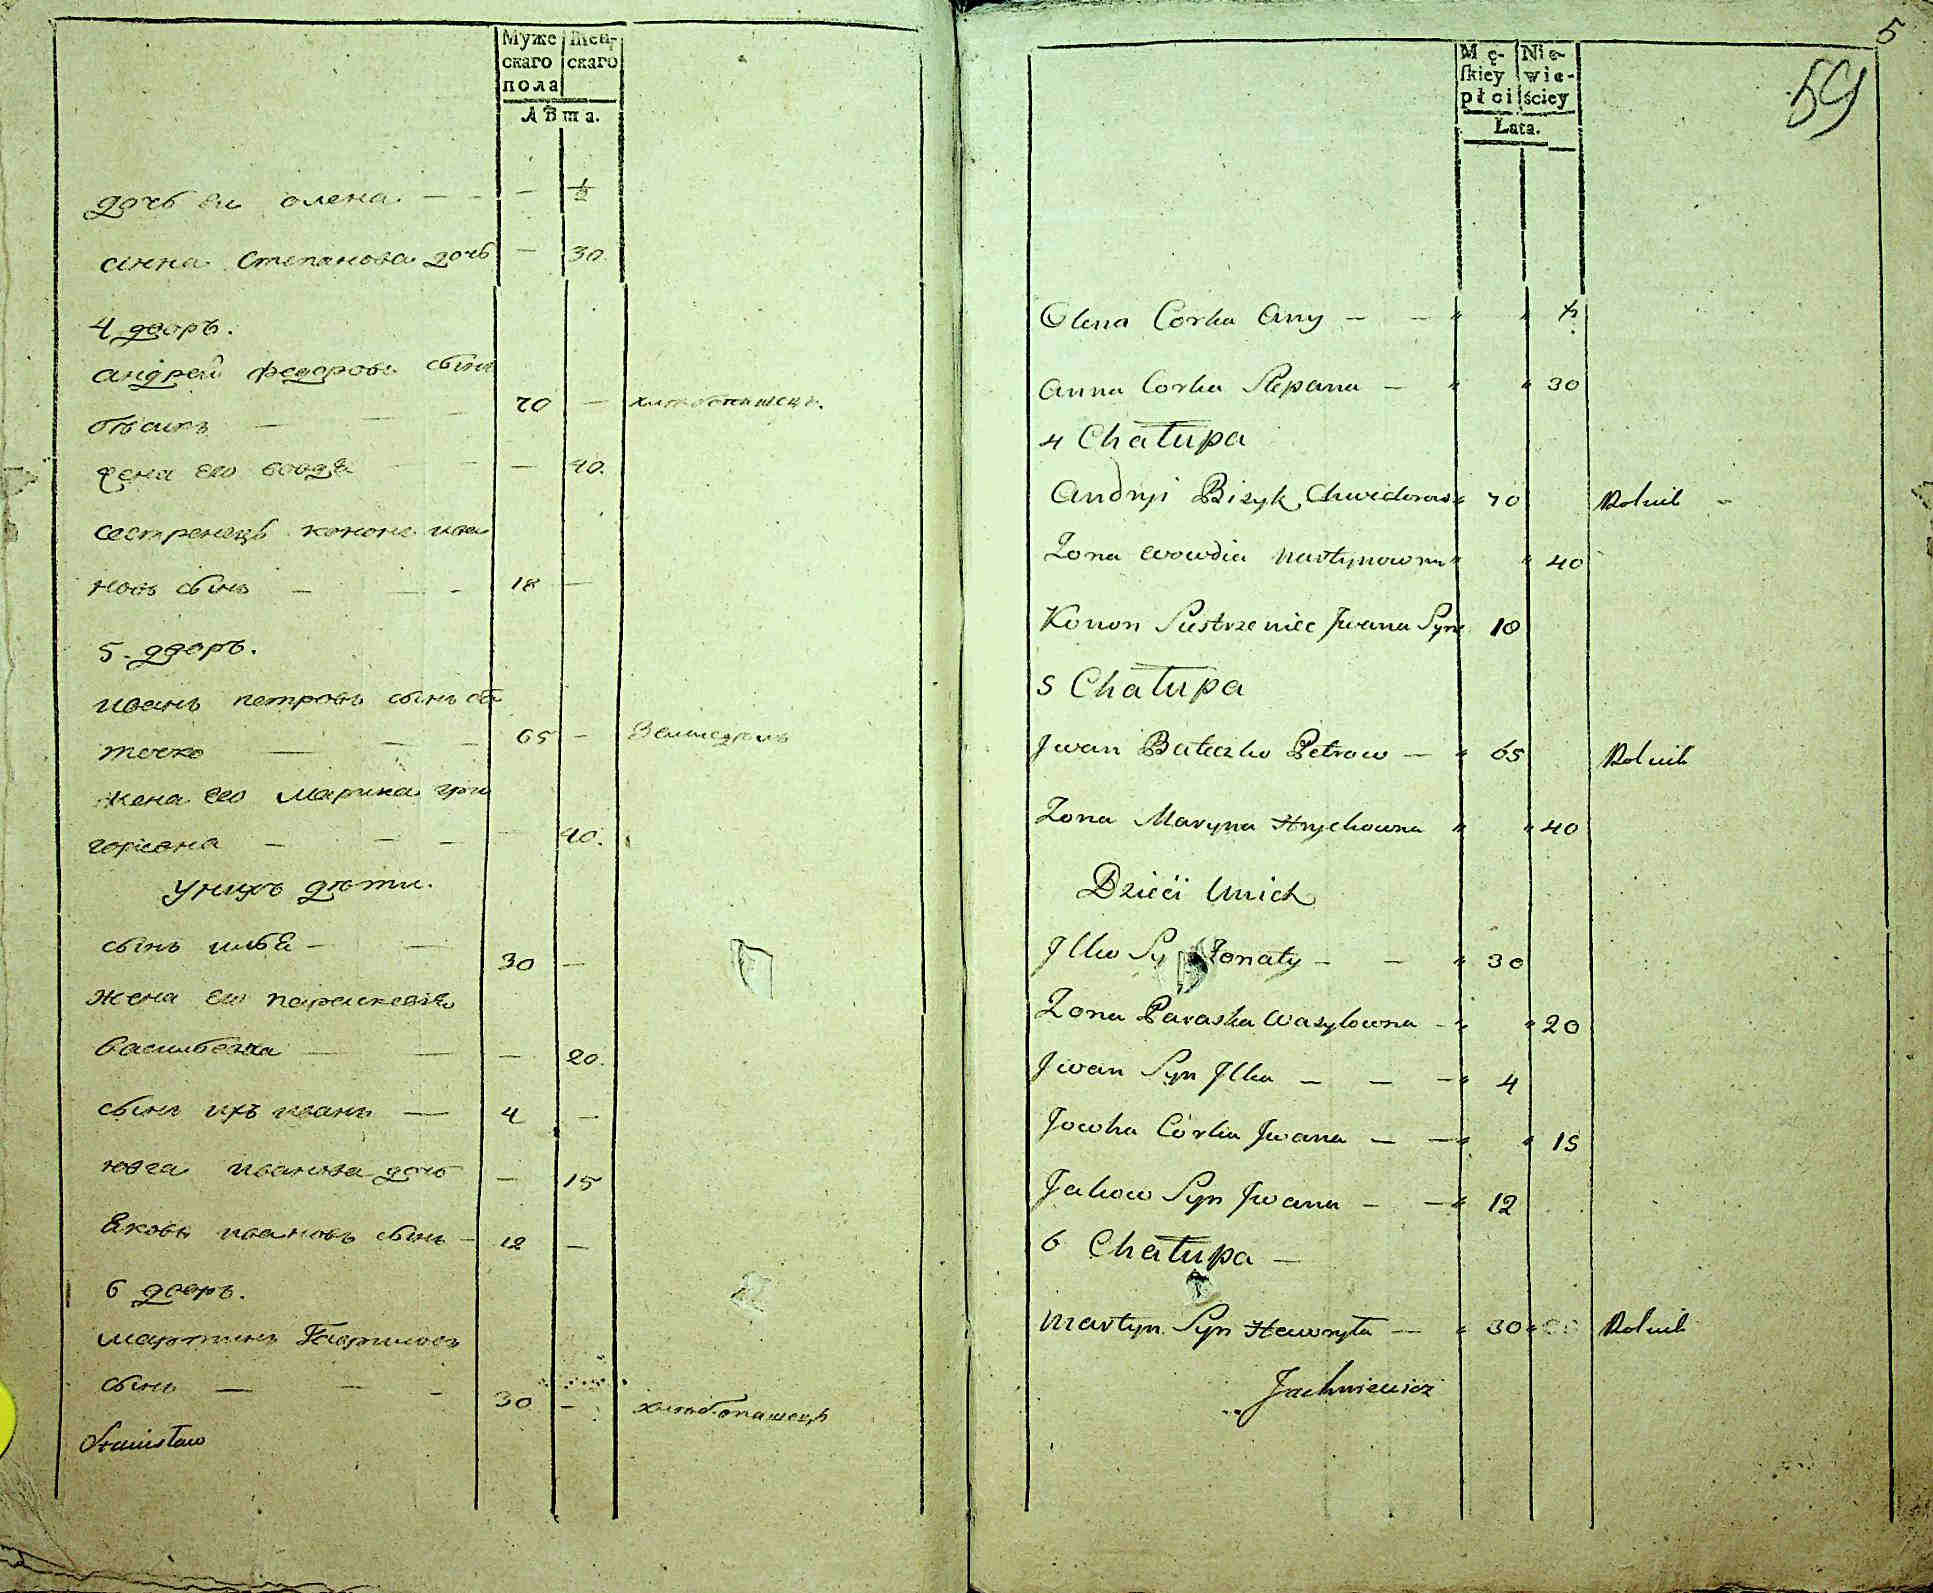 Муже
скаго
пола
Жен-
скаго
лѣта.
дочь ея олена — — — ½
анна Степанова дочь — 30.
4 дворъ.
андрей федоровъ сынъ
бѣзикъ — — — 70 — хлѣбопашецъ.
жена его вовдя — — — 40.
сестренецъ кононъ ива
новъ сынъ — — - 18 —
5 дворъ.
иванъ петровъ сынъ ба
течко — — — 65 — Земледѣлъ
жена его Марина гри
горьевна — — — — 40.
У нихъ дѣти.
сынъ илья — — 30 —
жена его параскевія
васильевна — — — 20.
сынъ ихъ иванъ — 4 —
юзга иванова дочь — 15
Яковъ ивановъ сынъ — 12 —
6 дворъ.
мартинъ Гаврилов
сынъ — — - 30 — хлѣбопашецъ
Stanisław
5
59
Mę-
ſkiey
płci
Nie-
wie-
ściey
Lata.
Olena Corka Any — — " " ½
Anna Corka Stepana — " " 30
4 Chałupa
Andryi Bizyk Chwedorow " 70 Rolnik -
Zona Wowdia Martynowna " " 40
Konon Siestrzeniec Jwana Syn 18
5 Chałupa
Jwan Bateczko Petrow — " 65 Rolnik
Zona Maryna Hrychowna " " 40
Dzieci Unich
Jlko Sy Żonaty — — " 30
Zona Paraska Wasylowna - " " 20
Jwan Syn Jlka — — — " 4
Jowha Córka Jwana — — " " 15
Jakow Syn Jwana — — " 12
6 Chałupa —
Martyn Syn Hawryła — " 30 " Rolnik
Jachniewicz